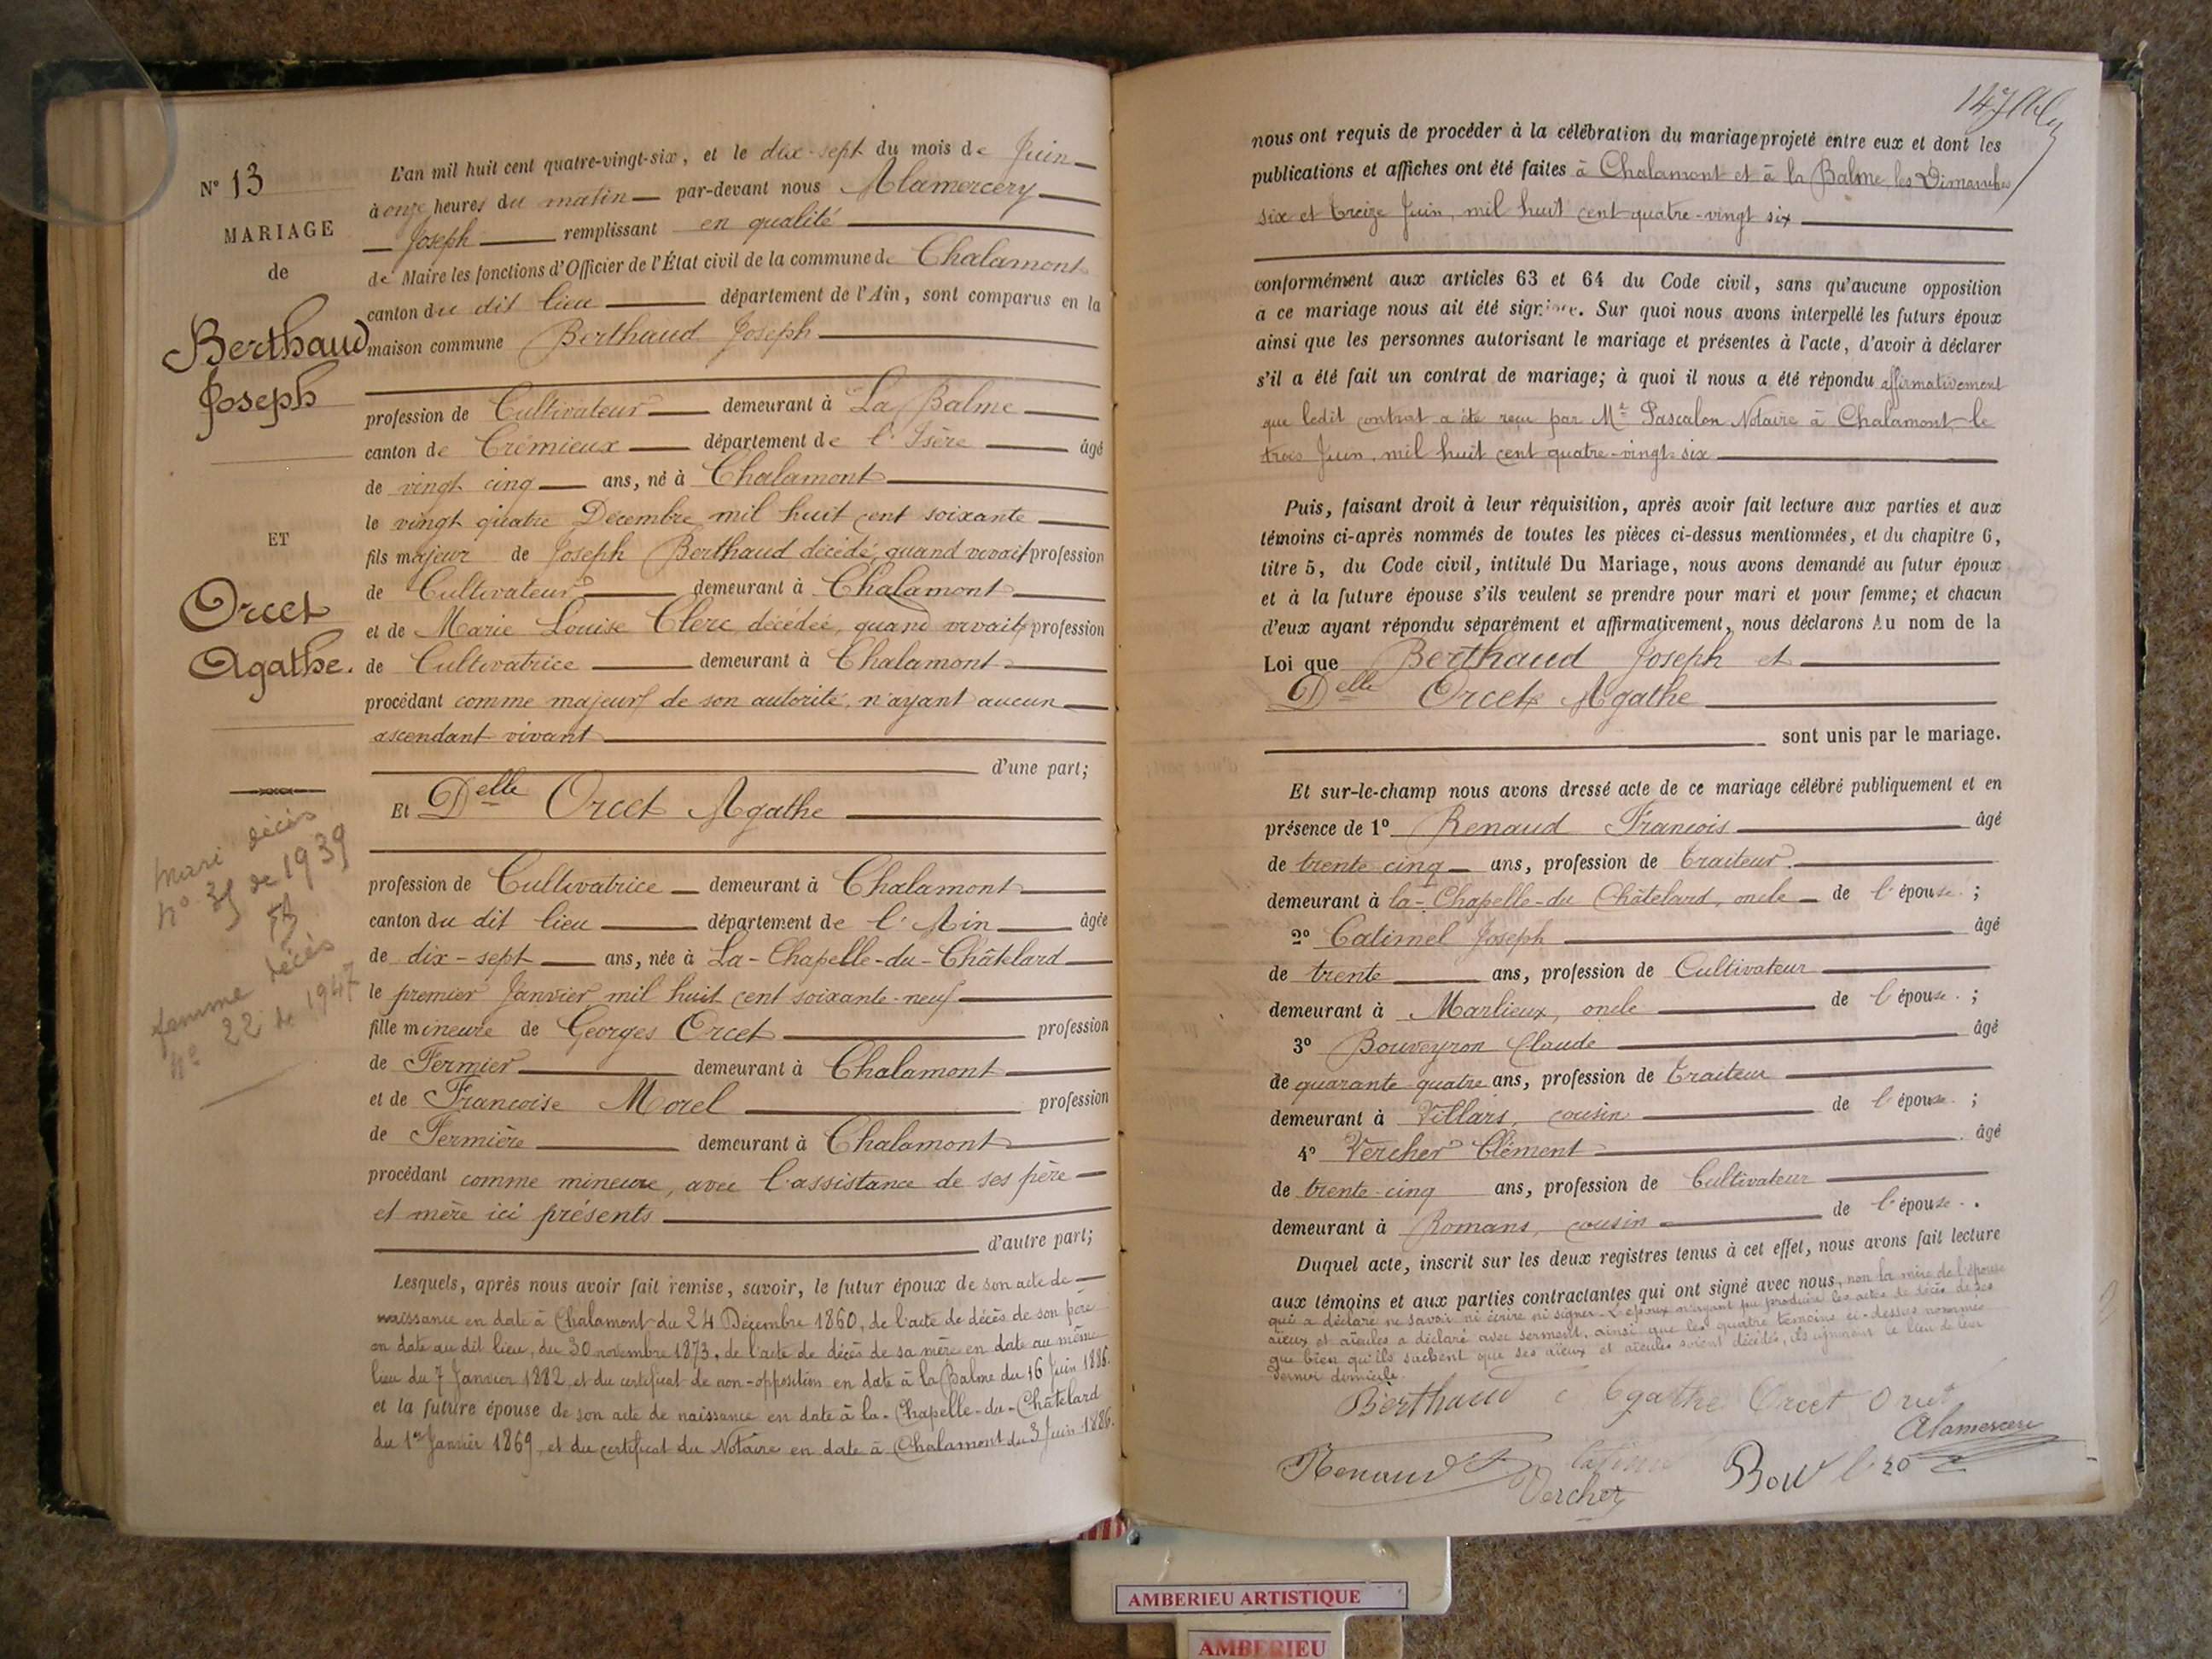 N° 13
MARIAGE
de
Berthaud
Joseph
ET
Orcet
Agathe.
mari décès
n° 35 de 1939
femme décès
n° 22 de 1947
L'an mil huit cent quatre-vingt-six, et le dix-sept du mois de Juin
à onze heures du matin par-devant nous Alamercery
Joseph remplissant en qualité
de Maire les fonctions d'Officier de l'État civil de la commune de Chalamont
canton du dit lieu département de l'Ain, sont comparus en la
maison commune Berthaud Joseph
profession de Cultivateur demeurant à La Balme
canton de Crémieux département de l'Isère âgé
de vingt cinq ans, né à Chalamont
le vingt quatre Décembre mil huit cent soixante
fils majeur de Joseph Berthaud décédé, quand vivait profession
de Cultivateur demeurant à Chalamont
et de Marie Louise Clerc décédée, quand vivait profession
de Cultivatrice demeurant à Chalamont
procédant comme majeur de son autorité, n'ayant aucun
ascendant vivant
d'une part;
Et Delle Orcet Agathe
profession de Cultivatrice demeurant à Chalamont
canton du dit lieu département de l'Ain âgée
de dix-sept ans, née à La-Chapelle-du-Châtelard
le premier Janvier mil huit cent soixante-neuf
fille mineure de Georges Orcet profession
de Fermier demeurant à Chalamont
et de Françoise Morel profession
de Fermière demeurant à Chalamont
procédant comme mineure, avec l'assistance de ses père
et mère ici présents
d'autre part;
Lesquels, après nous avoir fait remise, savoir, le futur époux de son acte de
naissance en date à Chalamont du 24 Décembre 1860, de l'acte de décès de son père
en date au dit lieu, du 30 novembre 1873, de l'acte de décès de sa mère en date au même
lieu du 7 Janvier 1882, et du certificat de non-opposition en date à la Balme du 16 Juin 1886.
et la future épouse de son acte de naissance en date à la-Chapelle-du-Châtelard
du 1er Janvier 1869, et du certificat du Notaire en date à Chalamont du 3 Juin 1886.
nous ont requis de procéder à la célébration du mariage projeté entre eux et dont les
publications et affiches ont été faites à Chalamont et à la Balme, les Dimanches
six et treize Juin, mil huit cent quatre-vingt six
conformément aux articles 63 et 64 du Code civil, sans qu'aucune opposition
à ce mariage nous ait été signifiée. Sur quoi nous avons interpellé les futurs époux
ainsi que les personnes autorisant le mariage et présentes à l'acte, d'avoir à déclarer
s'il a été fait un contrat de mariage; à quoi il nous a été répondu affirmativement
que ledit contrat a été reçu par Me Pascalon Notaire à Chalamont, le
trois Juin, mil huit cent quatre-vingt-six
Puis, faisant droit à leur réquisition, après avoir fait lecture aux parties et aux
témoins ci-après nommés de toutes les pièces ci-dessus mentionnées, et du chapitre 6,
titre 5, du Code civil, intitulé Du Mariage, nous avons demandé au futur époux
et à la future épouse s'ils veulent se prendre pour mari et pour femme; et chacun
d'eux ayant répondu séparément et affirmativement, nous déclarons Au nom de la
Loi que Berthaud Joseph et
Delle Orcet Agathe
sont unis par le mariage.
Et sur-le-champ nous avons dressé acte de ce mariage célébré publiquement et en
présence de 1° Renaud François âgé
de trente cinq ans, profession de traiteur.
demeurant à la-Chapelle-du Châtelard, oncle de l'épouse ;
2° Catimel Joseph âgé
de trente ans, profession de Cultivateur
demeurant à Marlieux, oncle de l'épouse ;
3° Bouveyron Claude âgé
de quarante quatre ans, profession de traiteur
demeurant à Villars, cousin de l'épouse ;
4° Vercher Clément âgé
de trente-cinq ans, profession de Cultivateur
demeurant à Romans, cousin de l'épouse .
Duquel acte, inscrit sur les deux registres tenus à cet effet, nous avons fait lecture
aux témoins et aux parties contractantes qui ont signé avec nous, non la mère de l'épouse
qui a déclaré ne savoir ni écrire ni signer. L'époux n'ayant pu produire les actes de décès de ses
aïeux et aïeules a déclaré avec serment, ainsi que les quatre témoins ci-dessus nommés
que bien qu'ils sachent que ses aïeux et aïeules soient décédés, ils ignorent le lieu de leur
dernier domicile.
Berthaud Agathe Orcet Orcet
Alamercery
Renaud
Vercher
AMBERIEU ARTISTIQUE
AMBERIEU